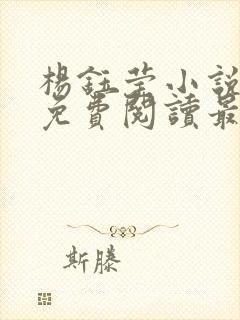 楊鈺瑩小說
免費閱讀最
斯滕